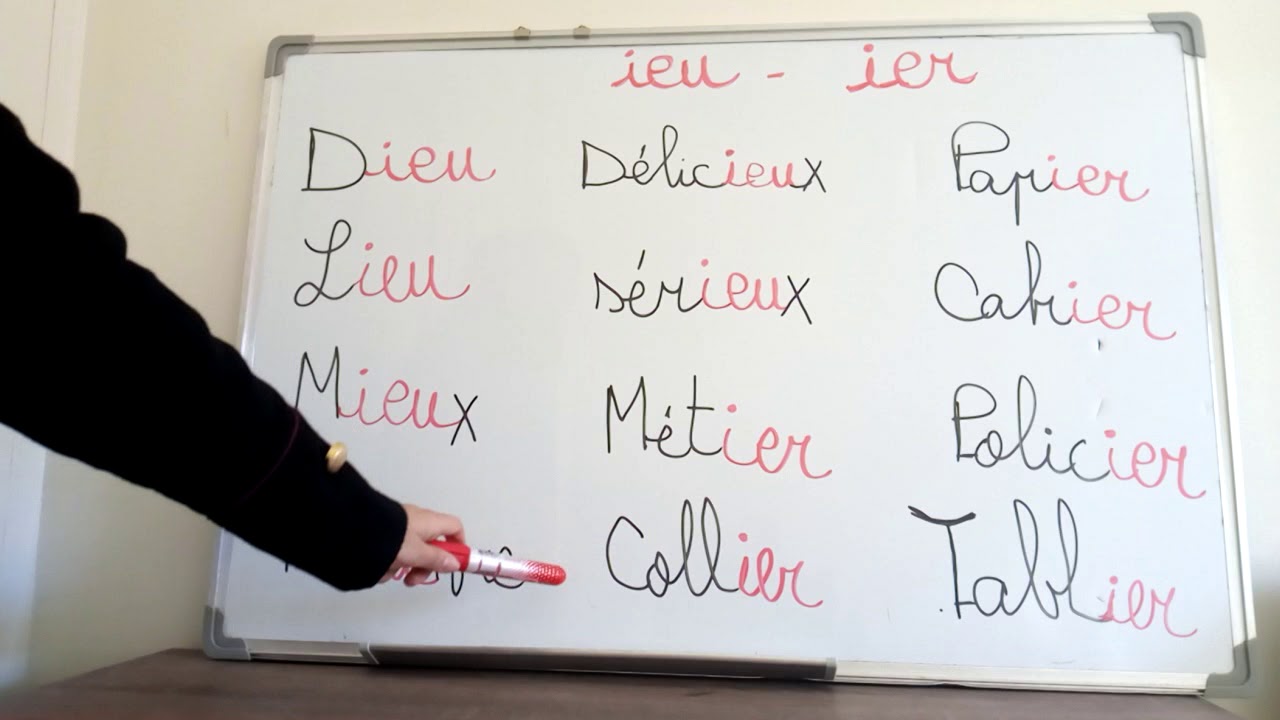 ieu - ier
Dieu Délicieux Papier
Lieu sérieux Cahier
Mieux Métier Policier
Collier Tablier